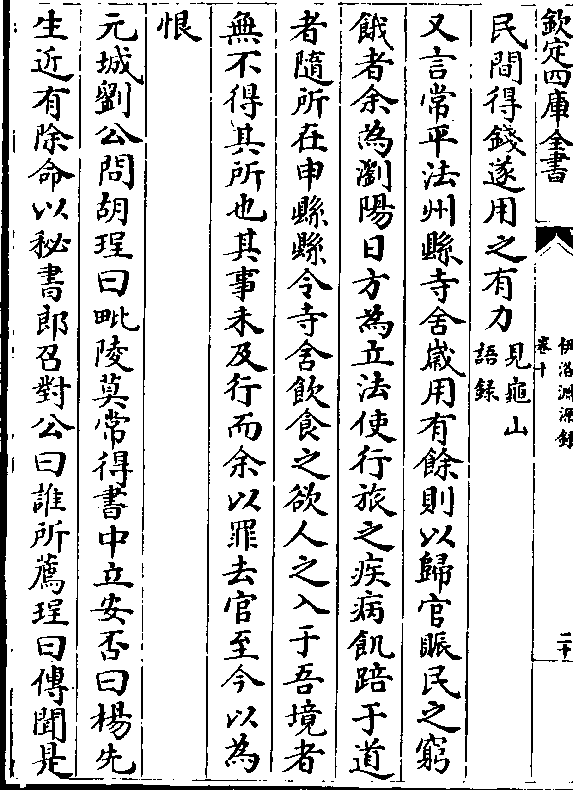 欽定四庫全書
伊洛淵源録
卷十
二十
民間得錢遂用之有力見龜山
語録
又言常平法州縣寺舍歲用有餘則以歸官賑民之窮
餓者余為瀏陽日方為立法使行旅之疾病飢踣于道
者隨所在申縣縣令寺舍飲食之欲人之入于吾境者
無不得其所也其事未及行而余以罪去官至今以為
恨
元城劉公問胡珵曰毗陵莫常得書中立安否曰楊先
生近有除命以秘書郎召對公曰誰所薦珵曰傳聞是